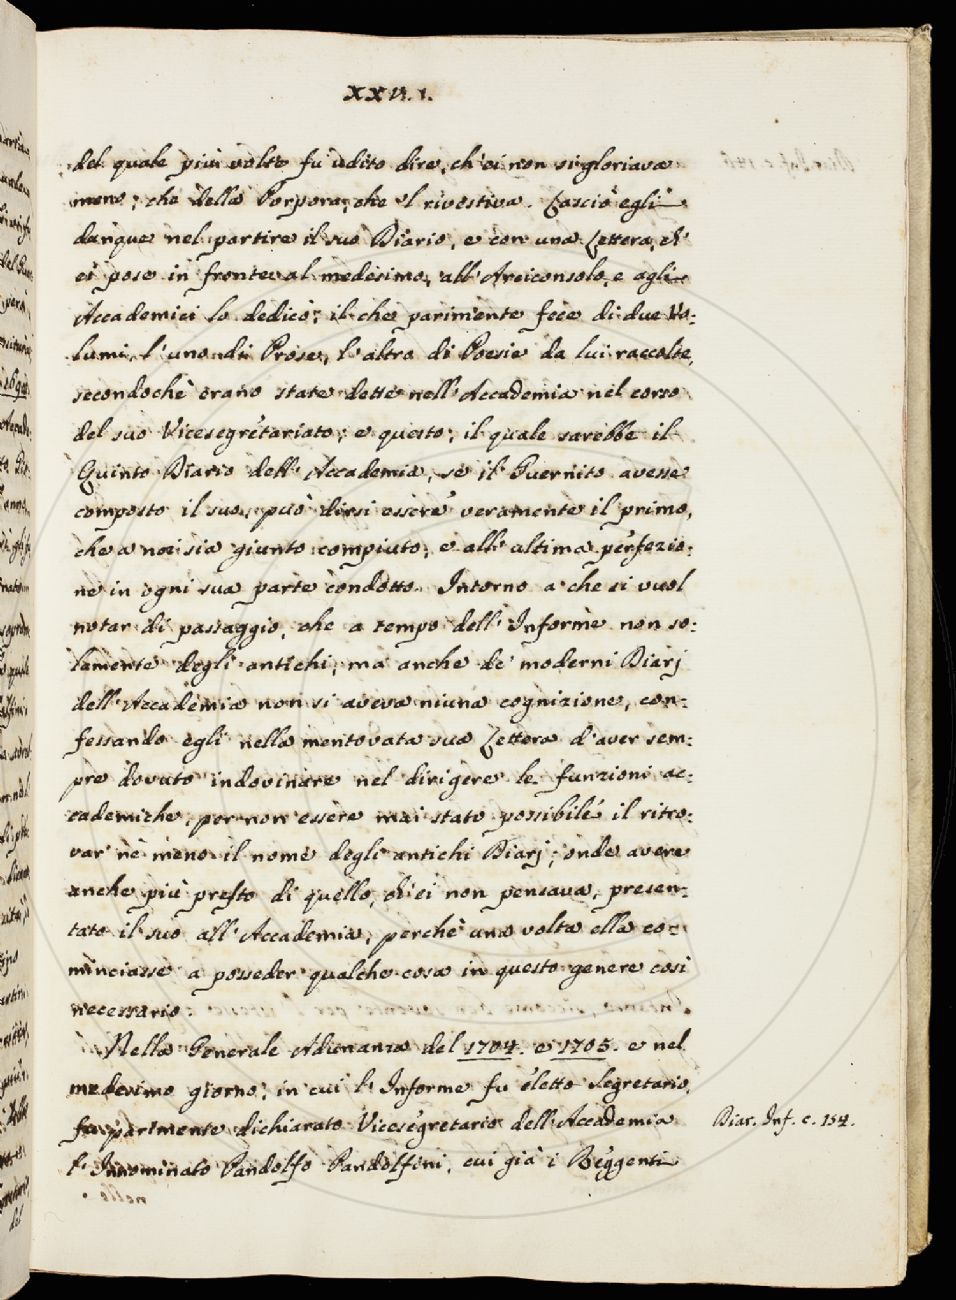 XXVI.
del quale più volte fù udito dire, ch'ei non si gloriava
meno, che della Porpora, che 'l rivestiva. Lasciò egli
dunque nel partire il suo Diario, e con una Lettera, ch'
ei pose in fronte al medesimo, all' Arciconsolo, e agli
Accademici lo dedicò; il che parimente fece di due Vo-
lumi, l'uno di Prose, l'altro di Poesie da lui raccolte,
secondochè erano state dette nell'Accademia nel corso
del suo Vicesegretariato; e questo, il quale sarebbe il
Quinto Diario dell'Accademia, se il Guernito avesse
composto il suo, può dirsi essere veramente il primo,
che a noi sia giunto compiuto, e all'ultima perfezio-
ne in ogni sua parte condotto. Intorno a che si vuol
notar di passaggio, che a tempo dell'Informe non so-
lamente degli antichi, ma anche de' moderni Diarj
dell'Accademia non si aveva niuna cognizione, con-
fessando egli nella mentovata sua Lettera d'aver sem-
pre dovuto indovinare nel dirigere le funzioni ac-
cademiche, per non essere mai stato possibile il ritro-
var nè meno il nome degli antichi Diarj; onde avere
anche più presto di quello, ch'ei non pensava, presen-
tato il suo all'Accademia, perchè una volta ella co-
minciasse a posseder qualche cosa in questo genere così
necessario
Nella Generale Adunanza del 1704. e 1705. e nel
medesimo giorno, in cui l'Informe fu eletto Segretario,
fu parimente dichiarato Vicesegretario dell'Accademia
l'Innominato Pandolfo Pandolfini, cui già i Reggenti
Diar. Inf. c. 154.